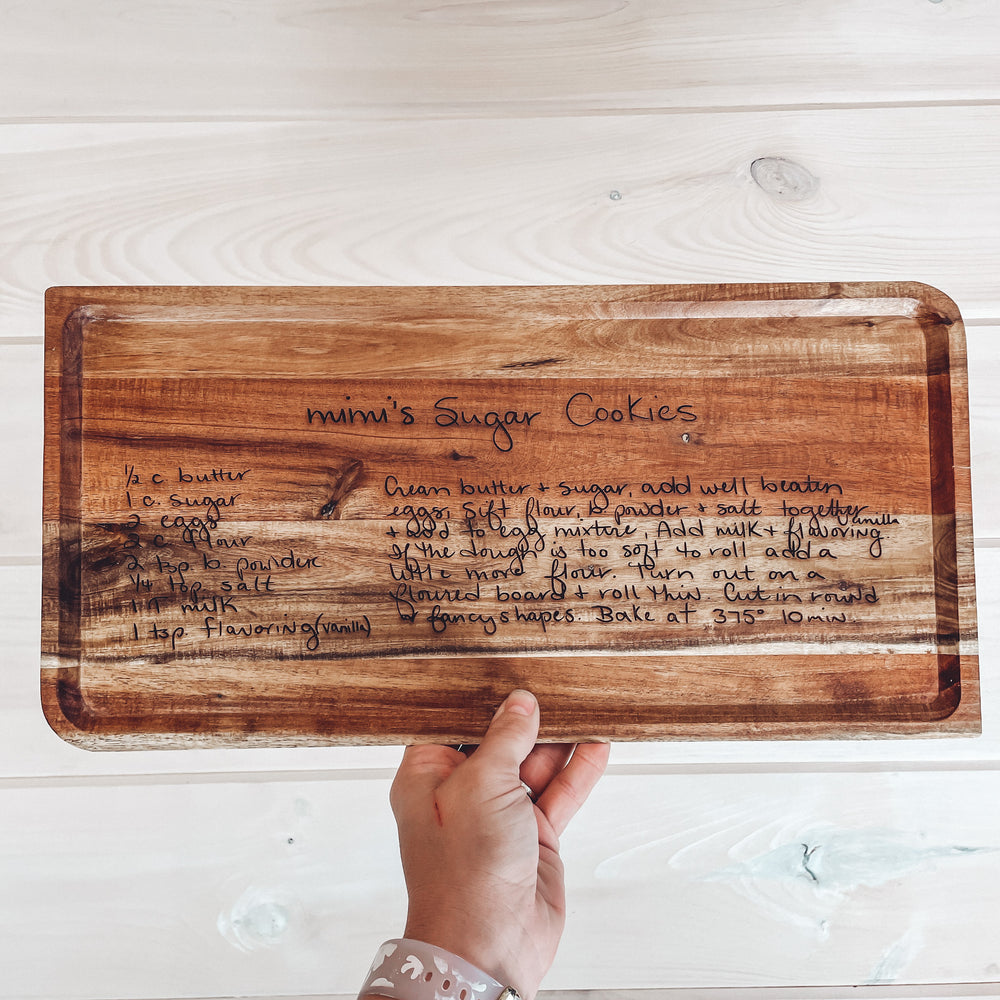 mimi's Sugar Cookies
½ c. butter
1 c. sugar
2 eggs
3 c. flour
2 tsp b. powder
¼ tsp salt
1 T milk
1 tsp flavoring (vanilla)
Cream butter + sugar, add well beaten
eggs, sift flour, b powder + salt together
+ add to egg mixture, Add milk + flavoring. vanilla
If the dough is too soft to roll add a
little more flour. Turn out on a
floured board + roll thin Cut in round
or fancy shapes. Bake at 375° 10 min.